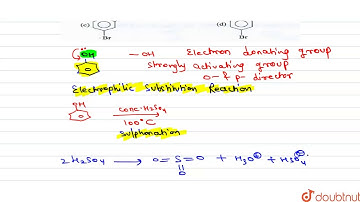 (c)
Br
(d)
Br
OH
— OH Electron donating group
Strongly activating group
o- & p- director
Electrophilic Substitution Reaction
OH
conc. H₂SO₄
100°C
Sulphonation
2 H₂SO₄ ⟶ O=S=O + H₃O⊕ + HSO₄⊖.
O
doubtnut